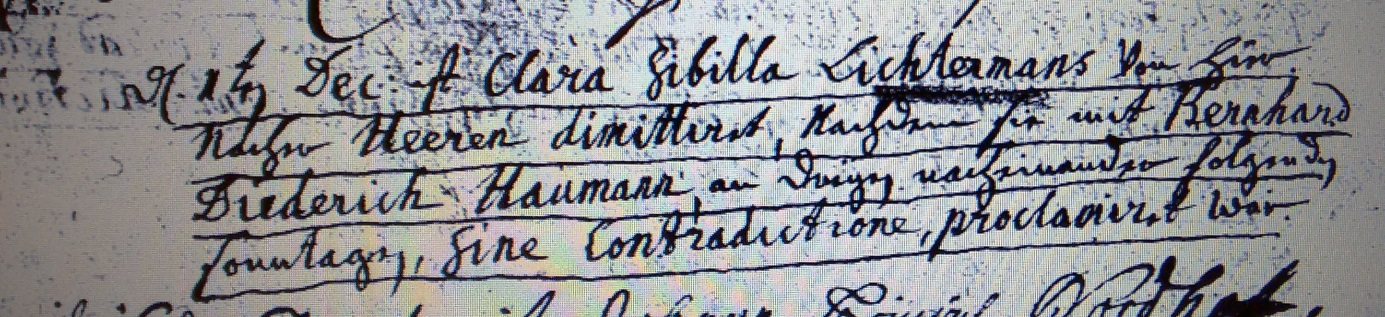 d. 1ten Dec: ist Clara Sibilla Lichtermans Von hier
Nacher Heeren dimittiret, Nachdem sie mit Bernhard
Diederich Haumann, an dreyen nacheinander folgenden
Sonntagen, Sine Contradictione, proclamiret wor.